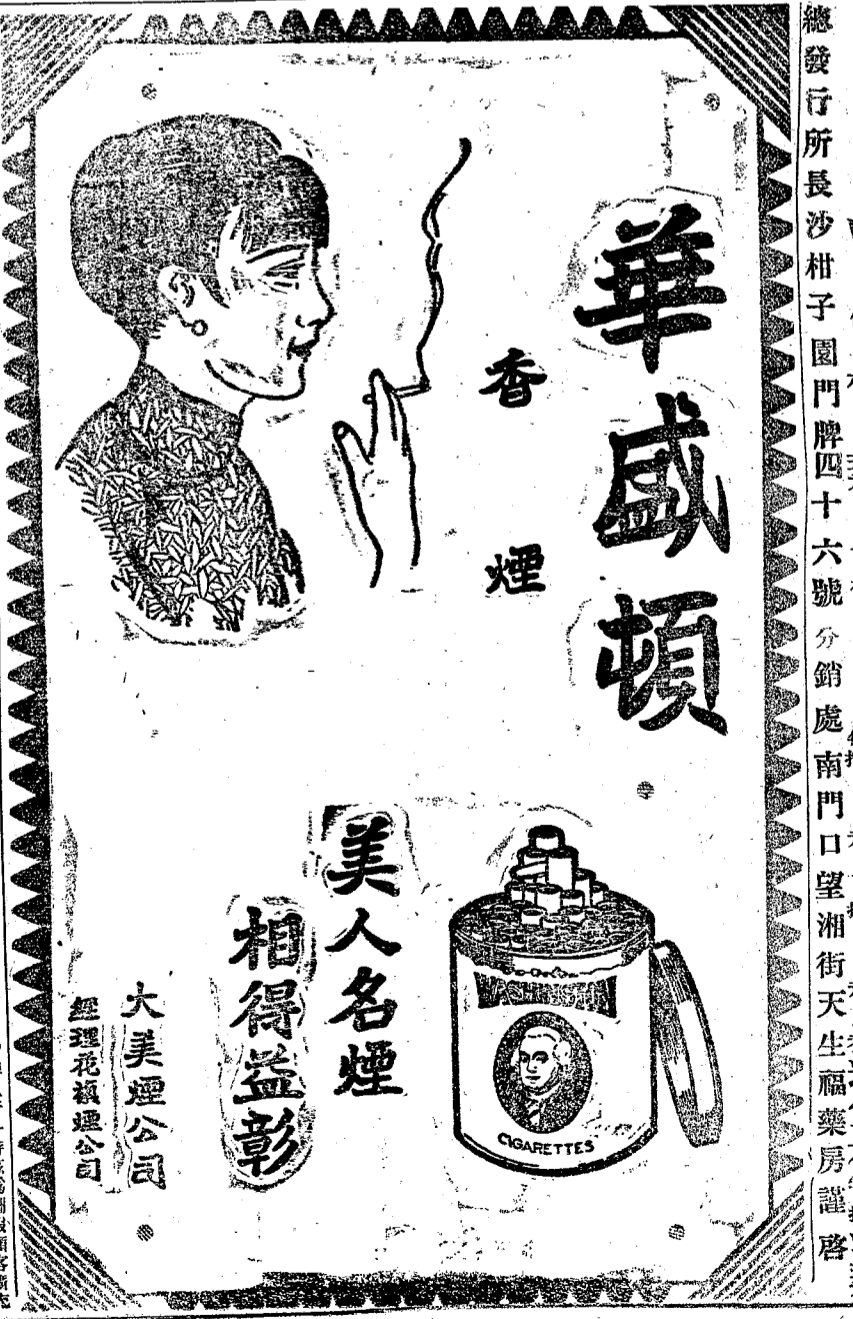 總發行所長沙柑子園門牌四十六號分銷處南門口望湘街天生福藥房謹啓
華盛頓
香煙
美人名煙
相得益彰
大美煙公司
WASHINGTON
CIGARETTES